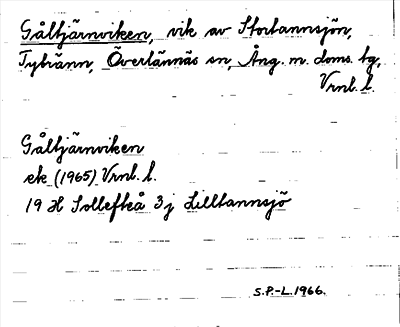 Gåltjärnviken, vik av Stortannsjön,
Tybränn, Överlännäs sn, Ång. m. doms. tg,
Vrnl. l.
Gåltjärnviken
ek (1965) Vrnl. l.
19 H Sollefteå 3j Lilltannsjö
S.P.-L.1966.